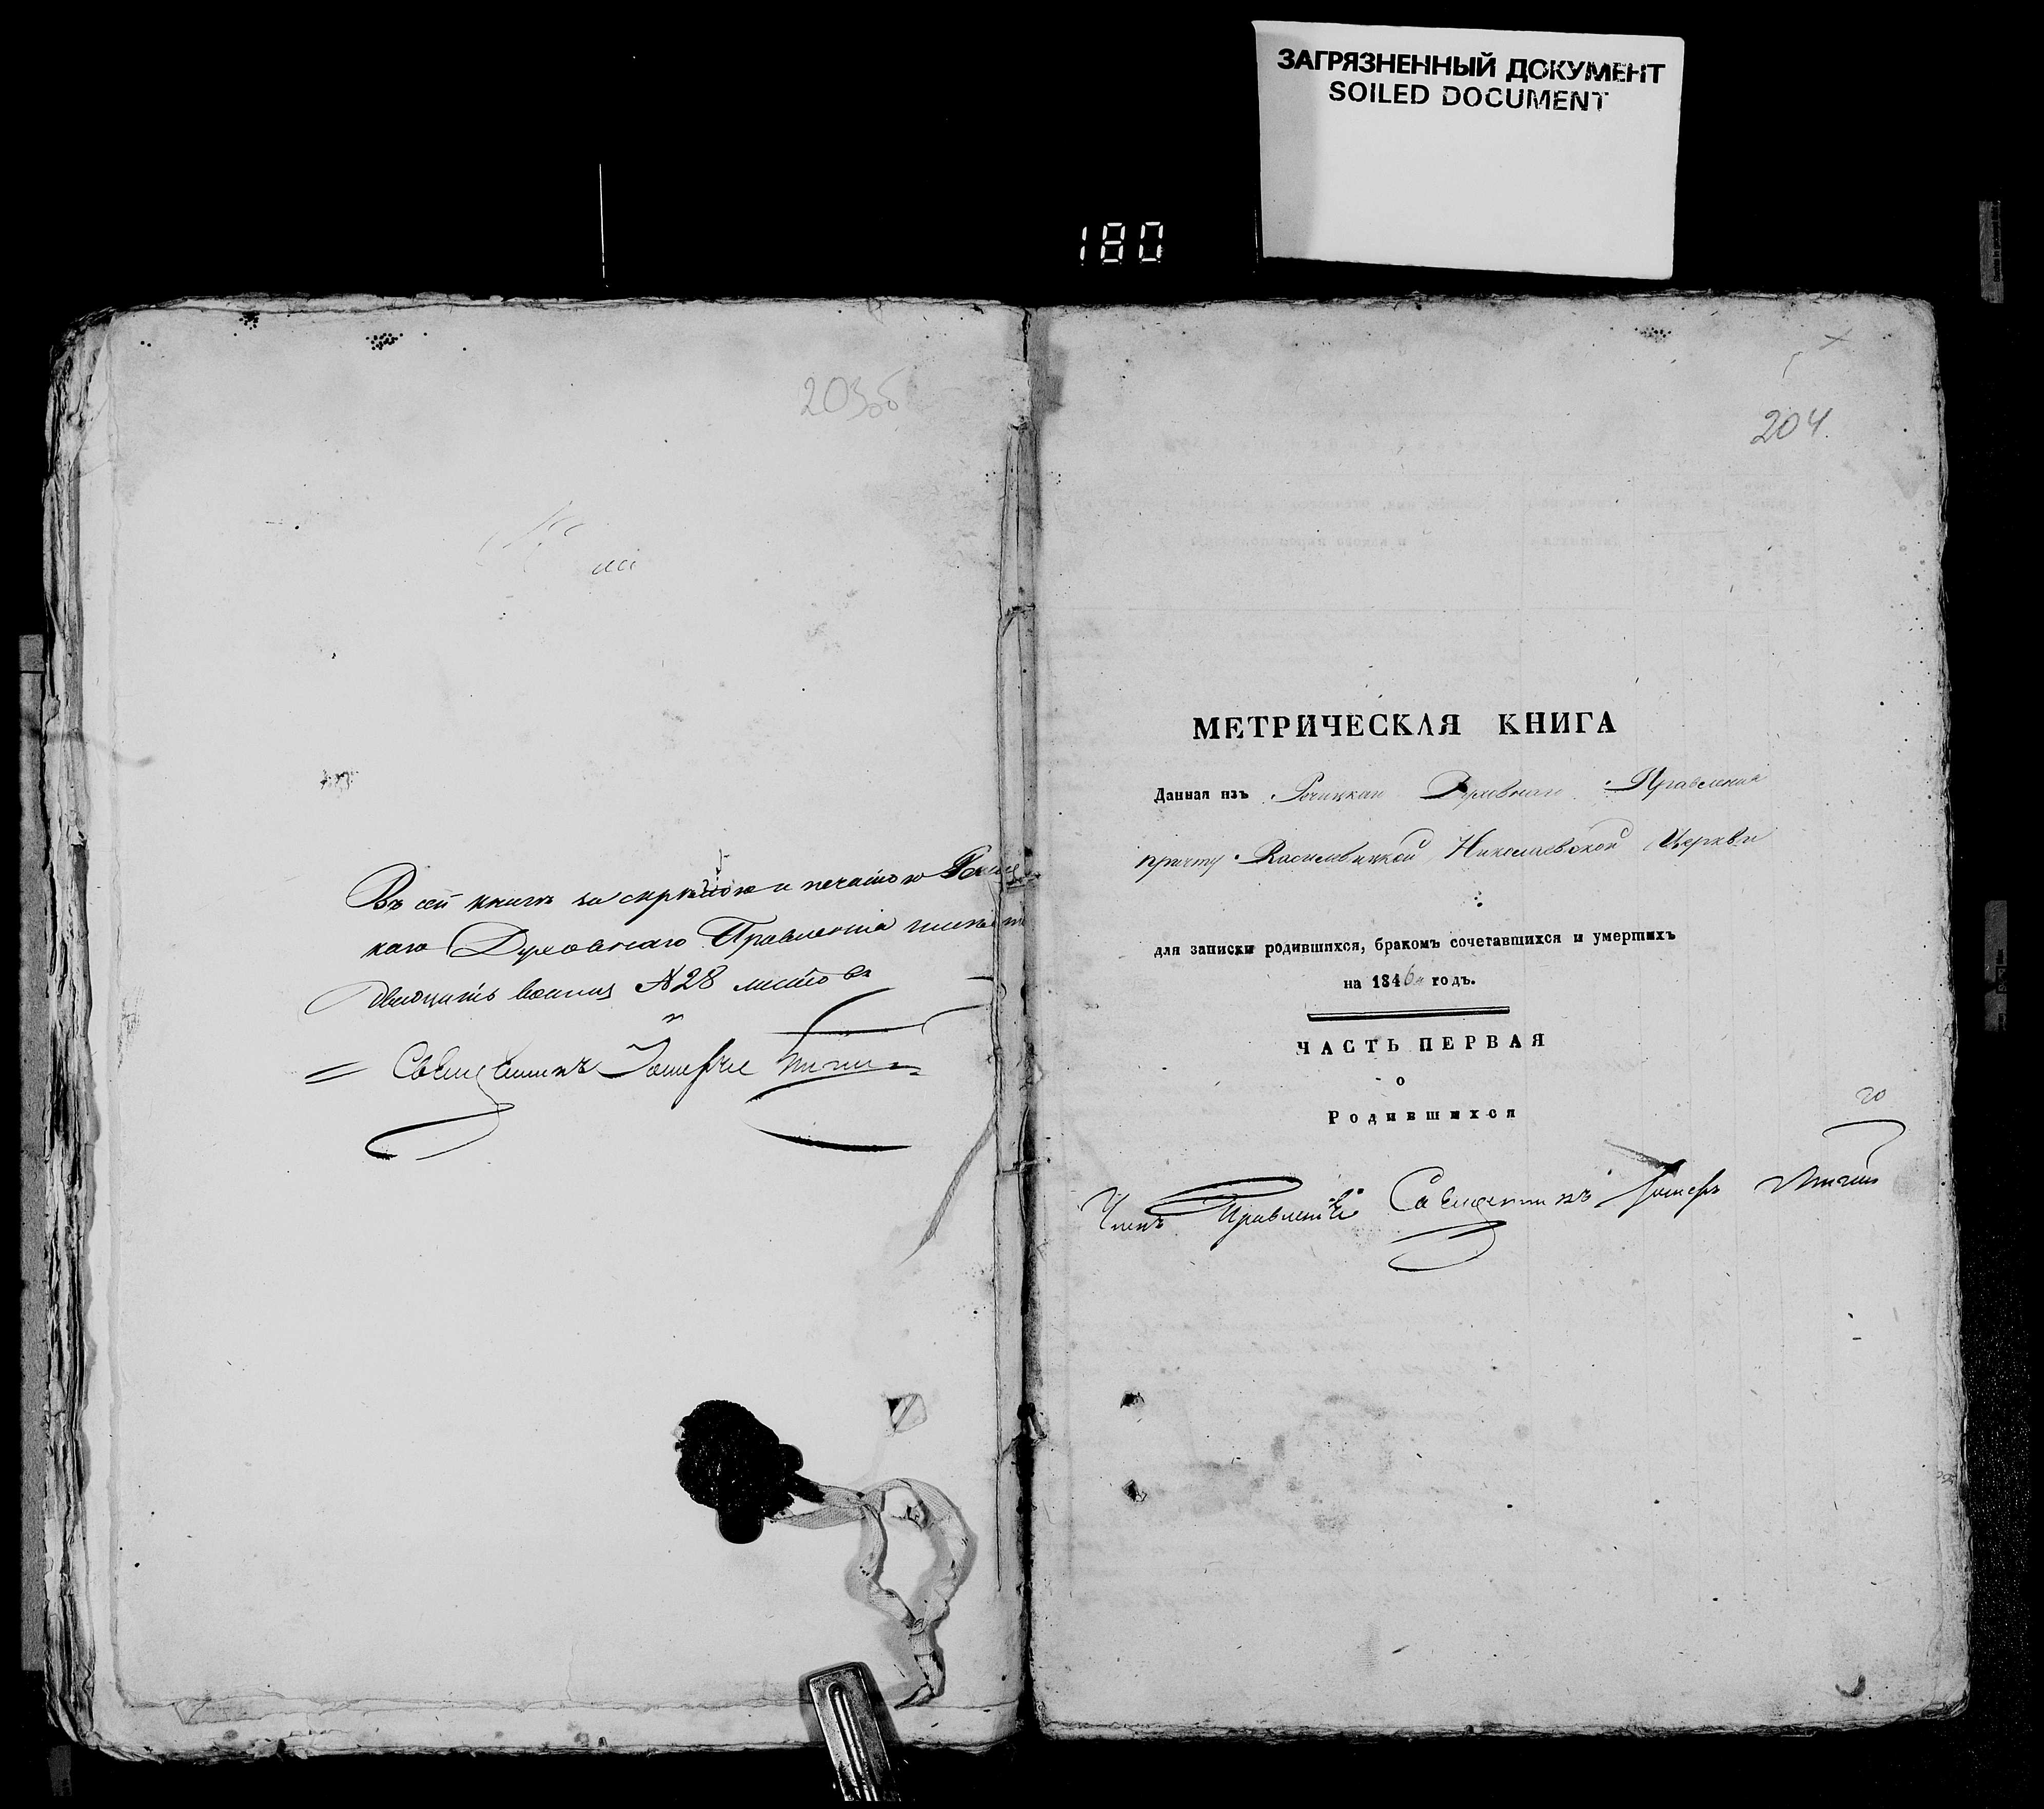 ЗАГРЯЗНЕННЫЙ ДОКУМЕНТ
SOILED DOCUMENT
180
203об
Въ сей книгѣ за скрѣпою и печатью Речиц
каго Духовнаго Правленія
двадцать восемь №28 листовъ
Священникъ
204.
МЕТРИЧЕСКАЯ КНИГА
Данная изъ Речицкаго Духовнаго Правленія
причту Василевицкой Николаевской Церкви
для записки родившихся, бракомъ сочетавшихся и умершихъ
на 1846й годъ.
ЧАСТЬ ПЕРВАЯ
о
Родившихся
Членъ Правленія Священникъ